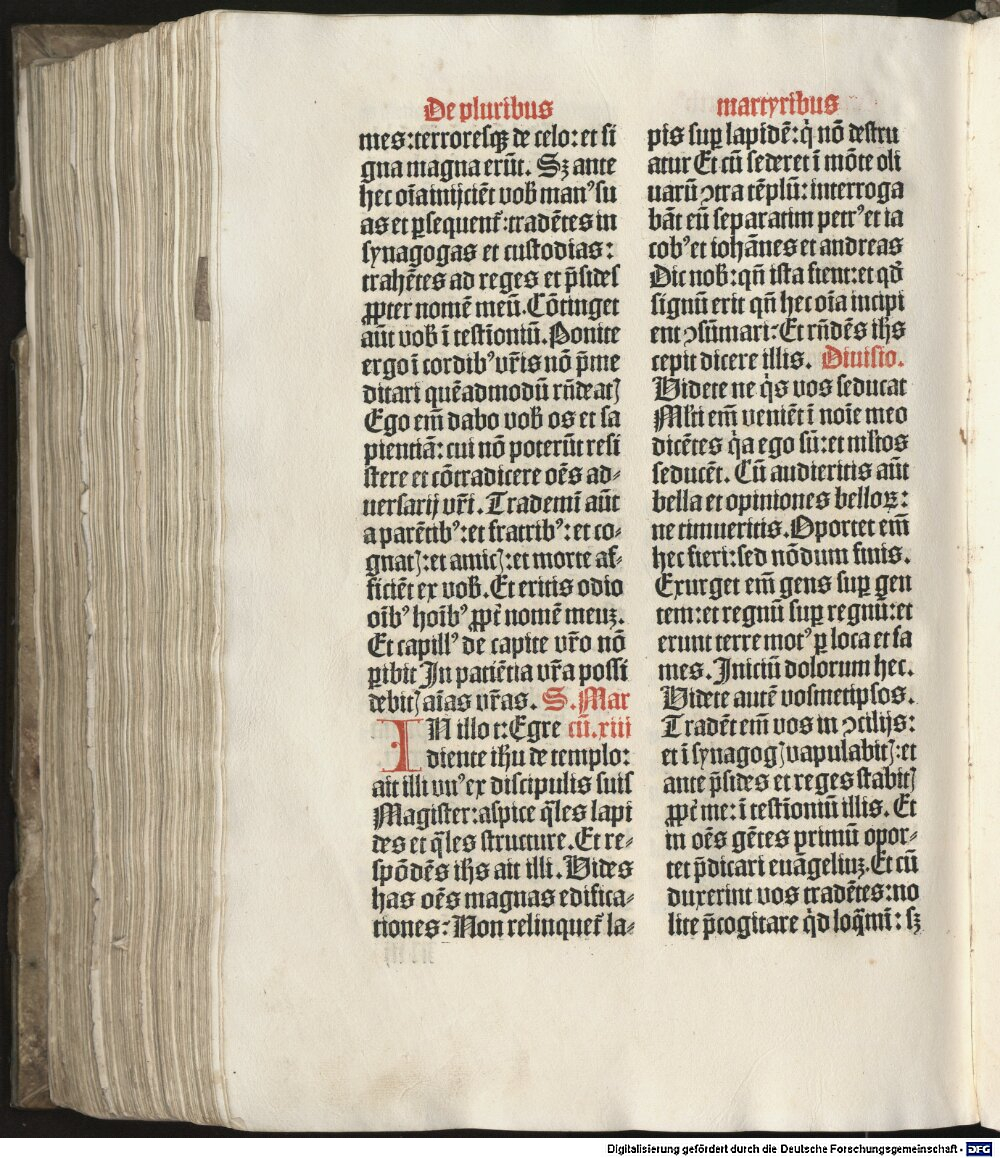 De pluribus
mes:terroresqꝫ de celo: et si
gna magna erūt. Sꝫ ante
hec oīa inijciēt vob̄ manꝰ su
as et ꝑsequent᷑:tradētes in
synagogas et custodias:
trahētes ad reges et p̄sides
ꝓpter nomē meū. Cōtinget
aūt vob̄ ī testīoniū. Ponite
ergo ī cordibꝰ vr̄is nō p̄me
ditari quēadmodū rn̄deatꝭ
Ego em̄ dabo vob̄ os et sa
pientiā: cui nō poterūt resi
stere et cōtradicere oēs ad⸗
uersarij vr̄i. Trademī aūt
a parētibꝰ: et fratribꝰ: et co⸗
gnatꝭ: et amicꝭ: et morte af⸗
ficiēt ex vob̄. Et eritis odio
oībꝰ hoībꝰ ꝓpt̄ nomē meuꝫ.
Et capillꝰ de capite vr̄o nō
ꝑibit In patiētia vr̄a possi
debitꝭ aīas vr̄as. S. Mar
IN illo t: Egre cū. xiii
diente ih̄u de templo:
ait illi vnꝰ ex discipulis suis
Magister: aspice q̄les lapi
des et q̄les structure. Et re⸗
spōdēs ih̄s ait illi. Vides
has oēs magnas edifica⸗
tiones: Non relinquet᷑ la⸗
martyribus
pis suꝑ lapidē: q̇ nō destru
atur Et cū sederet ī mōte oli
uarū ↄtra tēplū: interroga
bāt eū separatim petrꝰ et ia
cobꝰ et iohānes et andreas
Dic nob̄: qn̄ ista fient: et qd̄
signū erit qn̄ hec oīa incipi
ent ↄsūmari: Et rn̄dēs ih̄s
cepit dicere illis. Diuisio.
Videte ne q̇s vos seducat
Ml̄ti em̄ veniēt ī noīe meo
dicētes q̇a ego sū: et ml̄tos
seducēt. Cū audieritis aūt
bella et opiniones belloꝝ:
ne timueritis. Oportet em̄
hec fieri: sed nōdum finis.
Exurget em̄ gens suꝑ gen
tem: et regnū suꝑ regnū: et
erunt terre motꝰ ꝑ loca et fa
mes. Iniciū dolorum hec.
Videte autē vosmetipsos.
Tradēt em̄ vos in ↄcilijs:
et ī synagogꝭ vapulabitꝭ: et
ante p̄sides et reges stabitꝭ
ꝓpt̄ me: ī testīoniū illis. Et
in oēs gētes primū opor⸗
tet p̄dicari euāgeliuꝫ. Et cū
duxerint vos tradētes: no
lite p̄cogitare q̇d loq̄mī: sꝫ
Digitalisierung gefördert durch die Deutsche Forschungsgemeinschaft - DFG